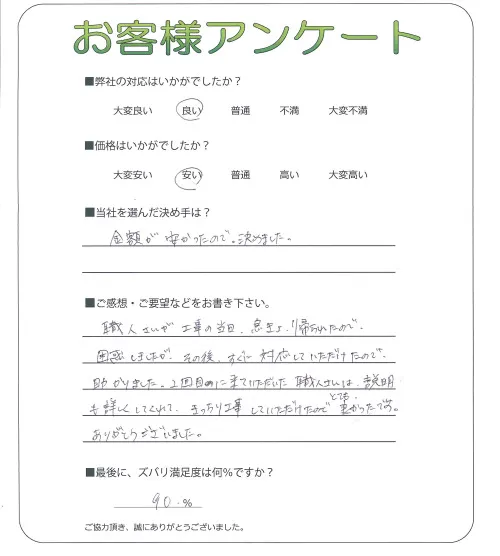 お客様アンケート
■弊社の対応はいかがでしたか？
大変良い 良い 普通 不満 大変不満
■価格はいかがでしたか？
大変安い 安い 普通 高い 大変高い
■当社を選んだ決め手は？
金額が安かったので。決めました。
■ご感想・ご要望などをお書き下さい。
職人さんが工事の当日、急きょ、帰られたので、
困惑しましたが、その後、すぐに対応していただけたので、
助かりました。2回目に来ていただいた職人さんは、説明
も詳しくしてくれて、きっちり工事していただけたのでとても良かったです。
ありがとうございました。
■最後に、ズバリ満足度は何％ですか？
90.%
ご協力頂き、誠にありがとうございました。